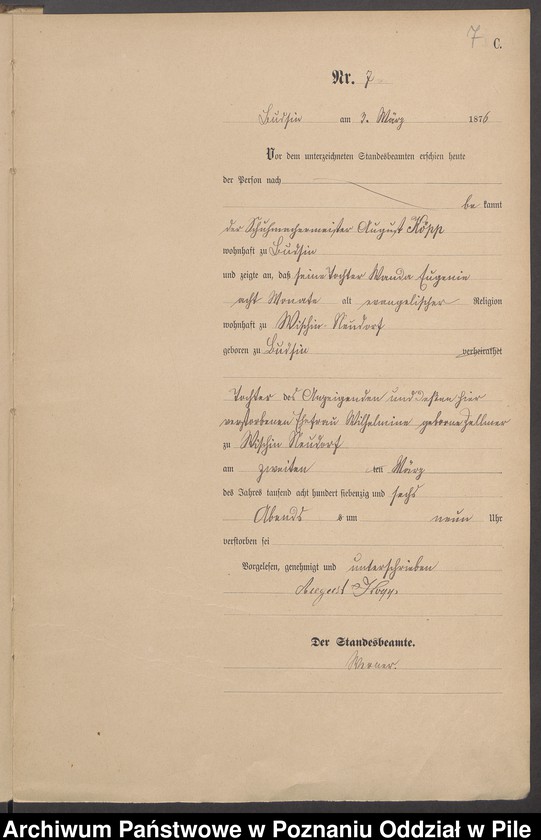 7 C.
Nr. 7
Budsin am 3. März 1876
Vor dem unterzeichneten Standesbeamten erschien heute
der Person nach
be kannt
der Schuhmachermeister August Köpp
wohnhaft zu Budsin
und zeigte an, daß seine Tochter Wanda Eugenie
acht Monate alt evangelischer Religion
wohnhaft zu Wischin Neudorf
geboren zu Budsin verheirathet
Tochter des Anzeigenden und dessen hier
verstorbenen Ehefrau Wilhelmine geborne Zellmer
zu Wischin Neudorf
am zweiten ten März
des Jahres tausend acht hundert siebenzig und sechs
Abends um neun Uhr
verstorben sei
Vorgelesen, genehmigt und unterschrieben
August Köpp
Der Standesbeamte.
Archiwum Państwowe w Poznaniu Oddział w Pile